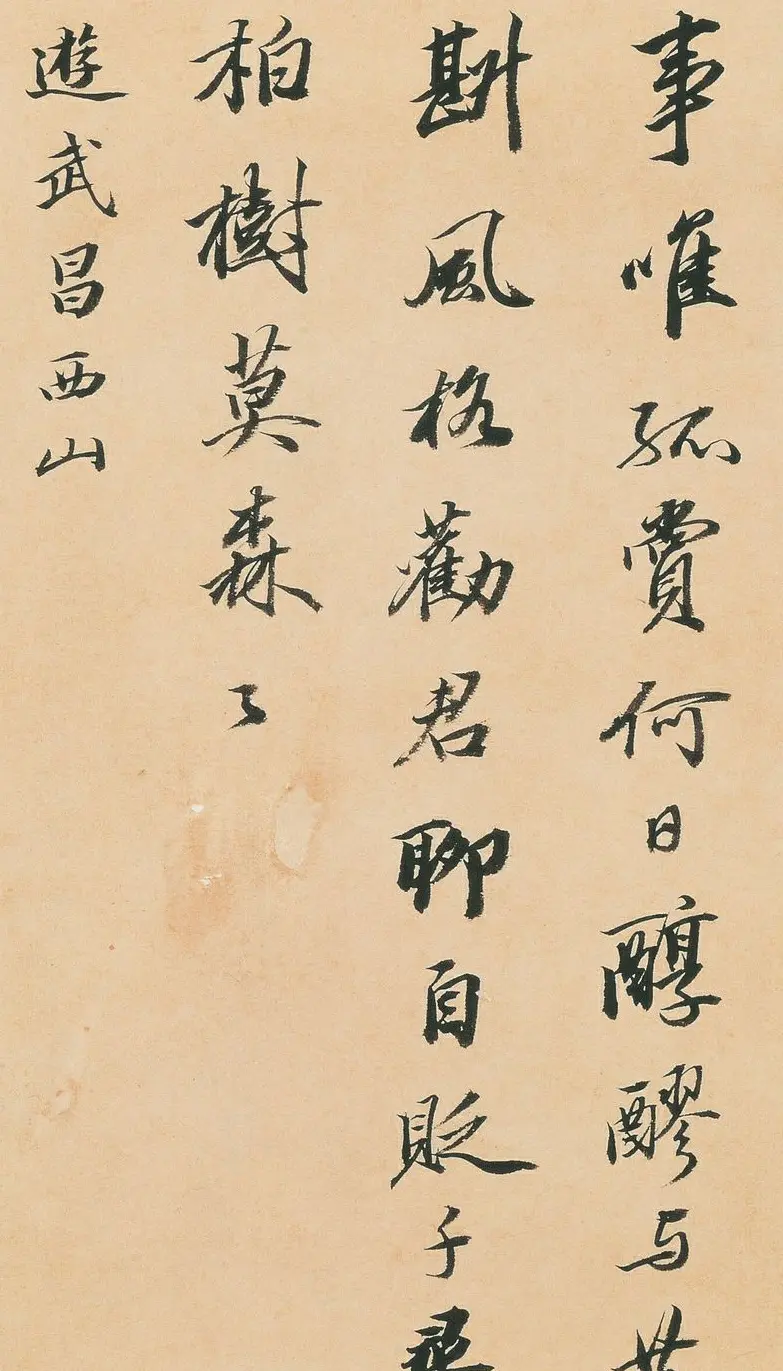 事唯孤賞何日醇醪与
斟風格勸君聊自貶千尋
柏樹莫森々
遊武昌西山